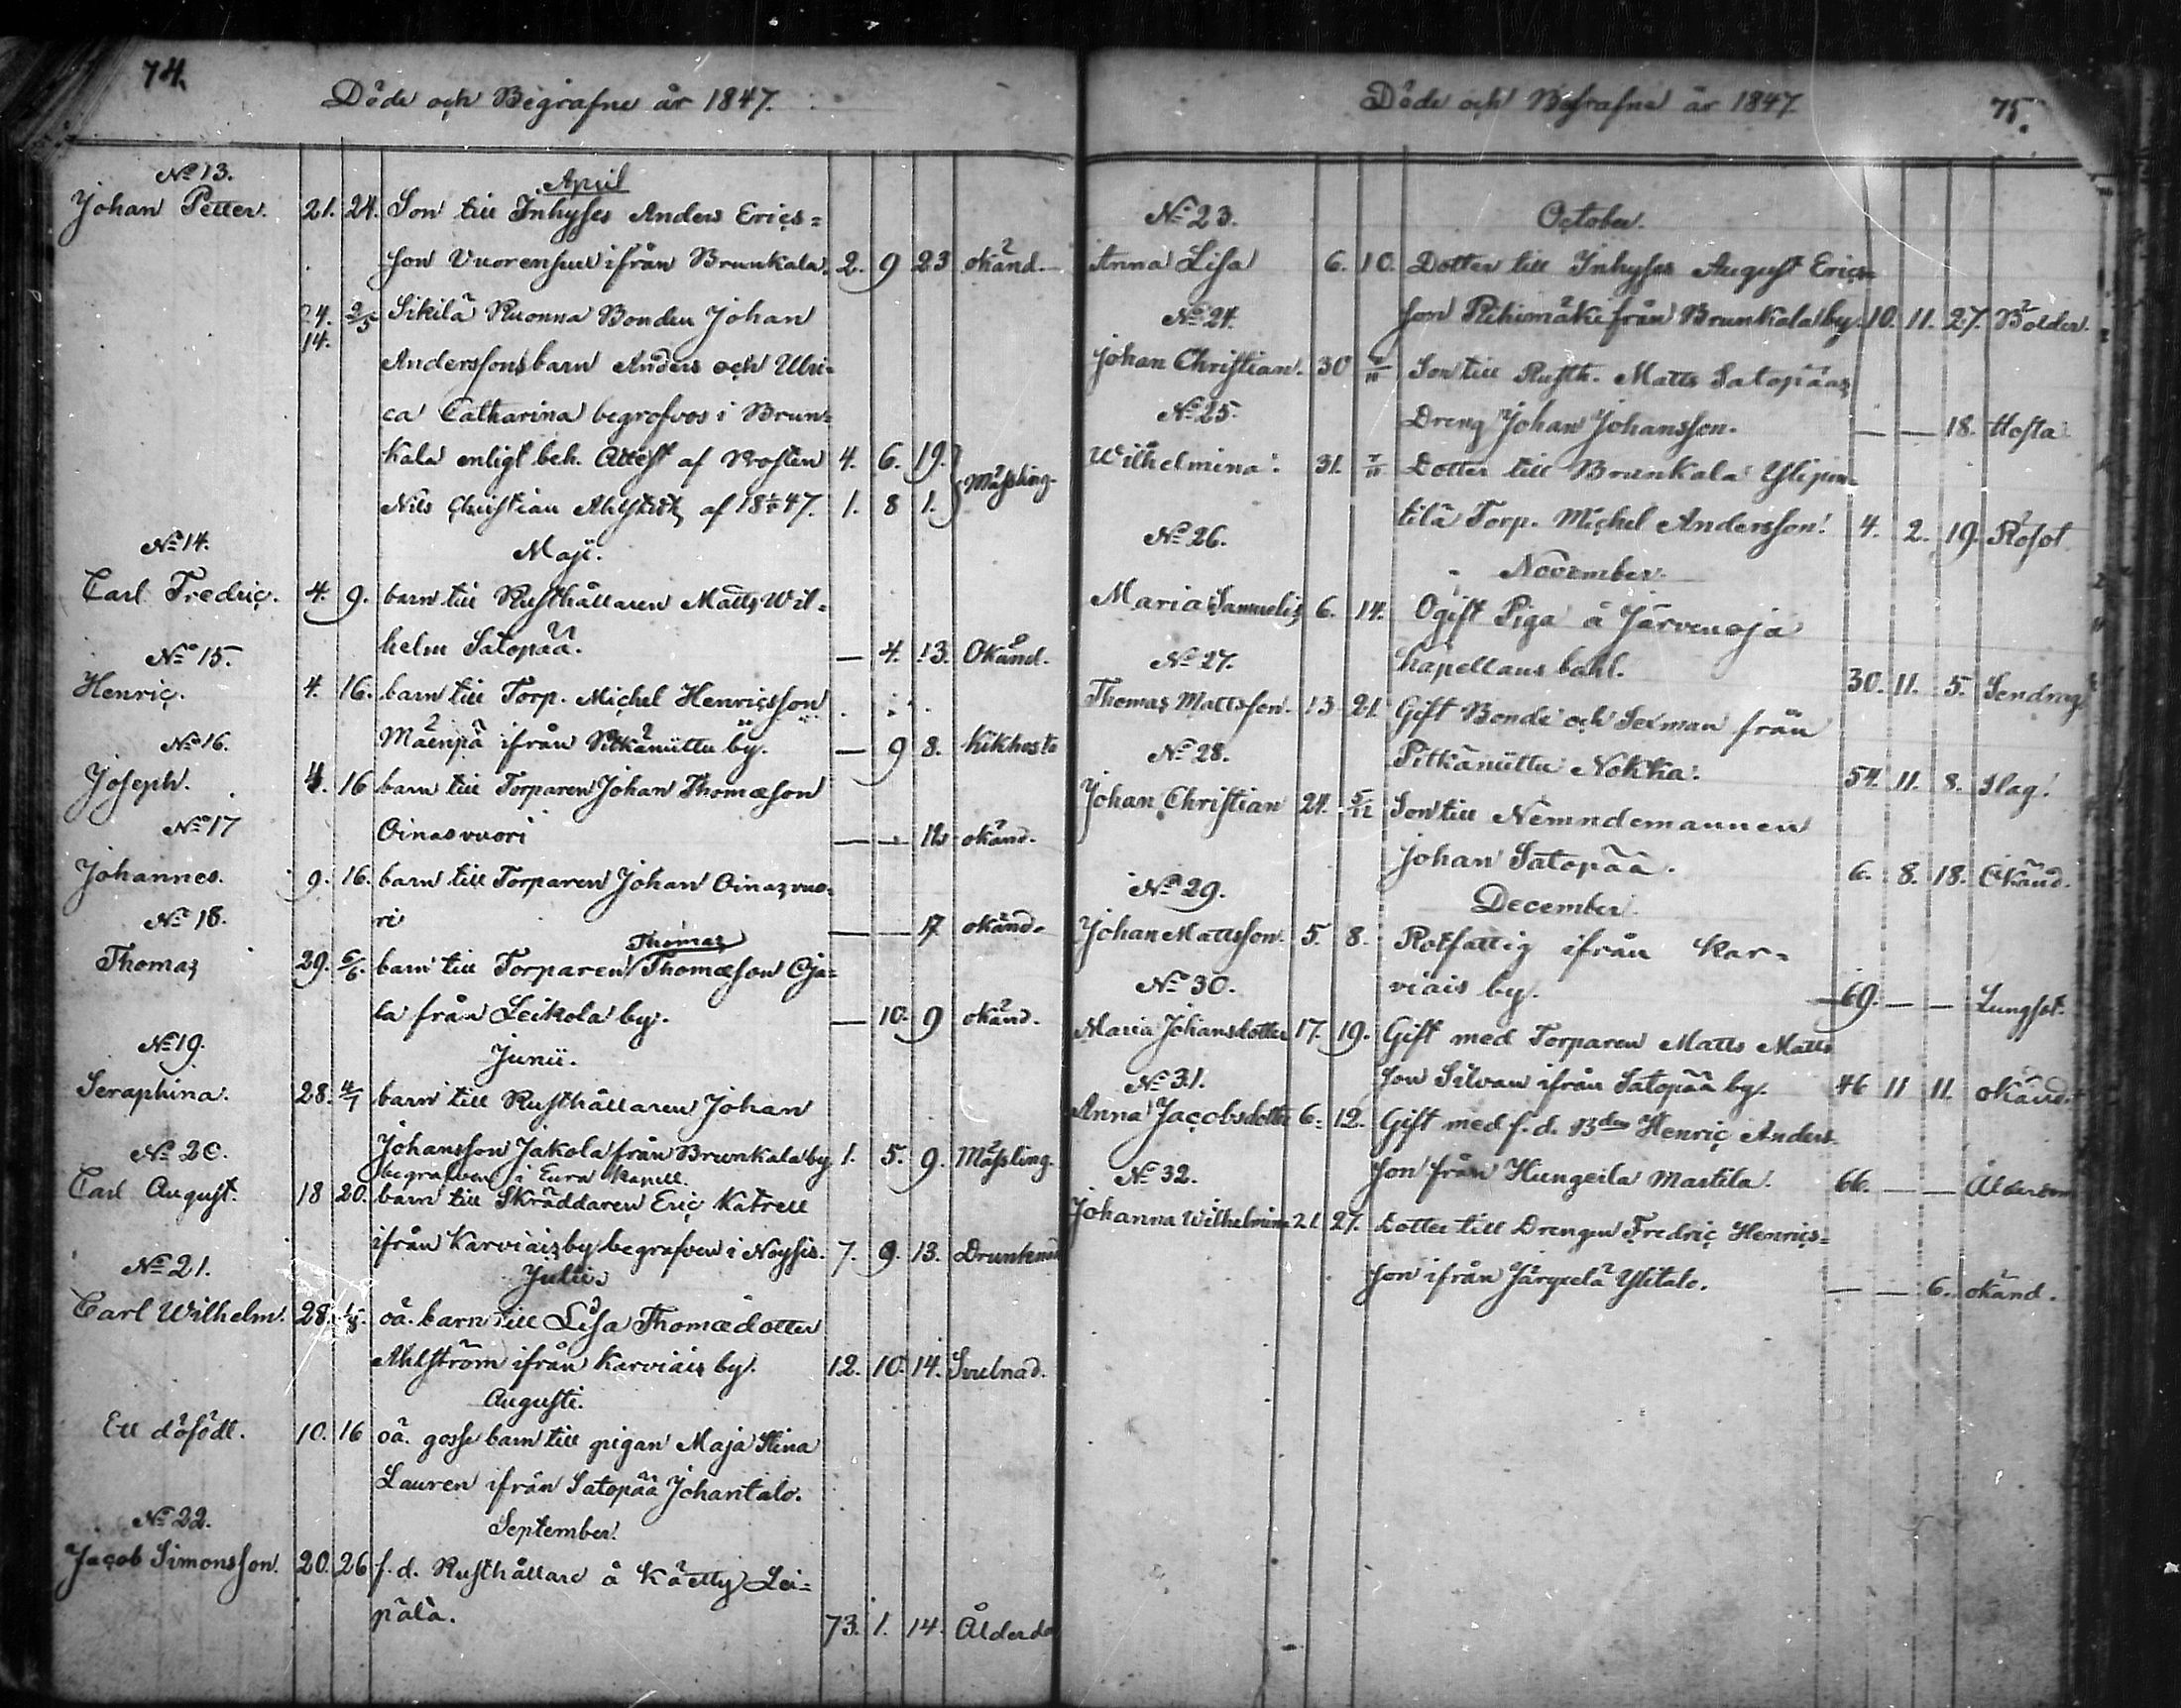 74.
Döde och Begrafne år 1847.
No 13.
April
Johan Petter. 21. 24. Son till Inhyses Anders Erics=
son Vuorensuu ifrån Brunkala. 2. 9 23 okänd.
24. 2/5 Sikilä Ruonna Bonden Johan
14.
Anderssons barn Anders och Ulri=
ca Catharina begrofvos i Brun=
kala enligt beh. Attest af Prosten 4. 6. 19.
Mässling.
Nils Christian Ahlstedt af 1847. 1. 8 1.
No 14.
Maji.
Carl Fredric. 4. 9. barn till Rusthållaren Matts Wil=
helm Satopää. — 4. 13. Okänd.
No 15.
Henric. 4. 16. barn till Torp. Michel Henricsson
Mäenpä ifrån Pitkäniittu by. — 9 8. kikhosta
No 16.
Joseph. 4. 16 barn till Torparen Johan Thomæson
Oinasvuori — — okänd.
No 17
Johannes. 9. 16. barn till Torparen Johan Oinasvuo=
ri — — 17 okänd.
No 18.
Thomas
Thomas 29. 6/6. barn till Torparen Thomæson Oja=
la från Leikola by. — 10. 9 okänd.
No 19.
Junii.
Seraphina. 28. 4/7 barn till Rusthållaren Johan
Johansson Jakola från Brunkala by 1. 5. 9. Mässling.
begrafven i Eura Kapell.
No 20.
Carl August. 18 20. barn till Skräddaren Eric Katrell
ifrån Karviais by begrafven i Noysis. 7. 9. 13. Drunknad
No 21.
Julii.
Carl Wilhelm. 28. oä. barn till Lisa Thomædotter
Ahlström ifrån Karviais by. 12. 10. 14. Svulnad.
Augusti.
Ett döfödt. 10. 16 oä. gosse barn till pigan Maja Stina
Lauren ifrån Satopää Johantalo.
No 22.
September.
Jacob Simonsson. 20. 26 f. d. Rusthållare å Kätty Lei=
pälä. 73. 1. 14. Ålderdo
Döde och Begrafne år 1847.
75.
No 23.
October.
Anna Lisa 6. 10. Dotter till Inhyses August Erics=
son Riihimäki från Brunkala by. 10. 11. 27. Bölder.
No 24.
Johan Christian. 30 Son till Rusth. Matts Satopääs
Dreng Johan Johansson. — — 18. Hosta
No 25.
Wilhelmina. 31. 7/11 Dotter till Brunkala Ylijun=
tilä Torp. Michel Andersson. 4. 2. 19. Rösot.
No 26.
November.
Maria Samuelis 6. 14. Ogift Piga å Järvenoja
Capellans bohl. 30. 11. 5. Lendrag
No 27.
Thomas Mattsson. 13 21. Gift Bonde och Sexman från
Pitkäniittu Nokka. 54. 11. 8. Slag.
No 28.
Johan Christian 24. 5/12 Son till Nämndemannen
Johan Satopää. 6. 8. 18. Okänd.
No 29.
December.
Johan Mattsson. 5. 8. Rotfattig ifrån Kar=
viais by. 69. — — Lungsot.
No 30.
Maria Johansdotter 17. 19. Gift med Torparen Matts Matts
son Silvan ifrån Satopää by. 46 11 11. okänd.
No 31.
Anna Jacobsdotter 6. 12. Gift med f. d. Bden Henric Anders
son från Hungeila Martila. 66. — — Ålderdom
No 32.
Johanna Wilhelmina 21. 27. Dotter till Drengen Fredric Henrics=
son ifrån Järpelä Ylitalo. — — 6. okänd.